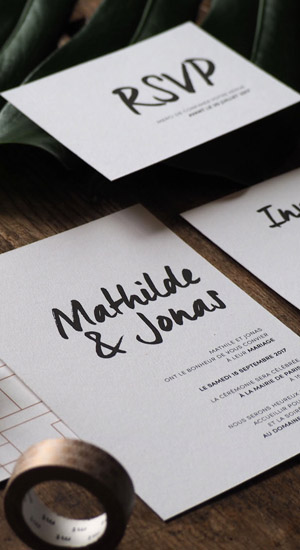 RSVP
Inv
Mathilde
& Jonas
MATHILE ET JONAS
ONT LE BONHEUR DE VOUS CONVIER
À LEUR MARIAGE
LE SAMEDI 16 SEPTEMBRE 2017
LA CÉRÉMONIE SERA CÉLÉBRÉE
À LA MAIRIE DE PARIS
NOUS SERONS HEUREUX
ACCUEILLIR POU
ET LA SOIR
AU DOMAINE